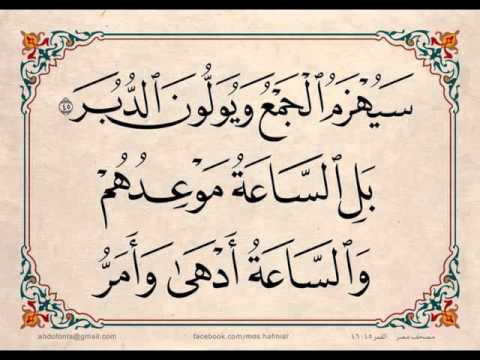 سَيُهْزَمُ ٱلْجَمْعُ وَيُوَلُّونَ ٱلدُّبُرَ ٤٥
بَلِ ٱلسَّاعَةُ مَوْعِدُهُمْ
وَٱلسَّاعَةُ أَدْهَىٰ وَأَمَرُّ
abdofonts@gmail.com facebook.com/mos.hafnial مصحف مصر القمر ٤٥-٤٦